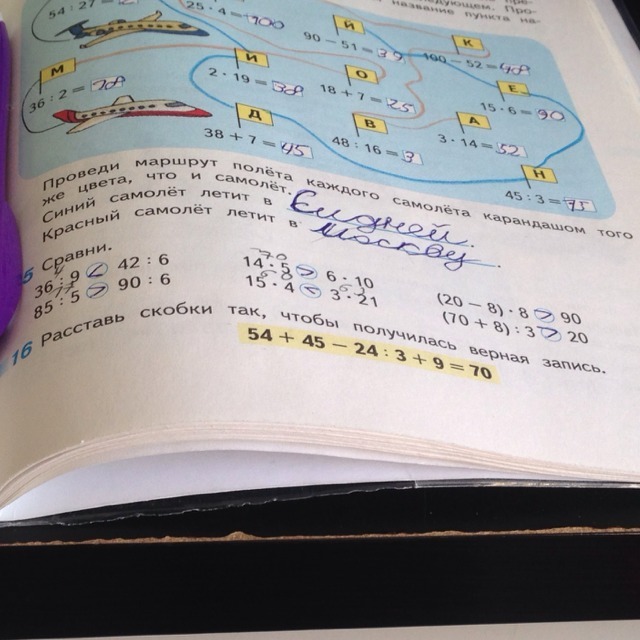 54 : 27 =
25 · 4 = 100
название пункта на-
Й
90 − 51 = 39
К
100 − 52 = 48
М
36 : 2 = 18
И
2 · 19 = 38
О
18 + 7 = 25
Е
15 · 6 = 90
Д
38 + 7 = 45
В
48 : 16 = 3
А
3 · 14 = 52
Н
45 : 3 = 15
Проведи маршрут полёта каждого самолёта карандашом того
же цвета, что и самолёт.
Синий самолёт летит в Сидней.
Красный самолёт летит в Москву.
5 Сравни.
36 : 9 < 42 : 6
14 · 5 > 6 · 10
(20 − 8) · 8 > 90
85 : 5 > 90 : 6
15 · 4 < 3 · 21
(70 + 8) : 3 > 20
16 Расставь скобки так, чтобы получилась верная запись.
54 + 45 − 24 : 3 + 9 = 70